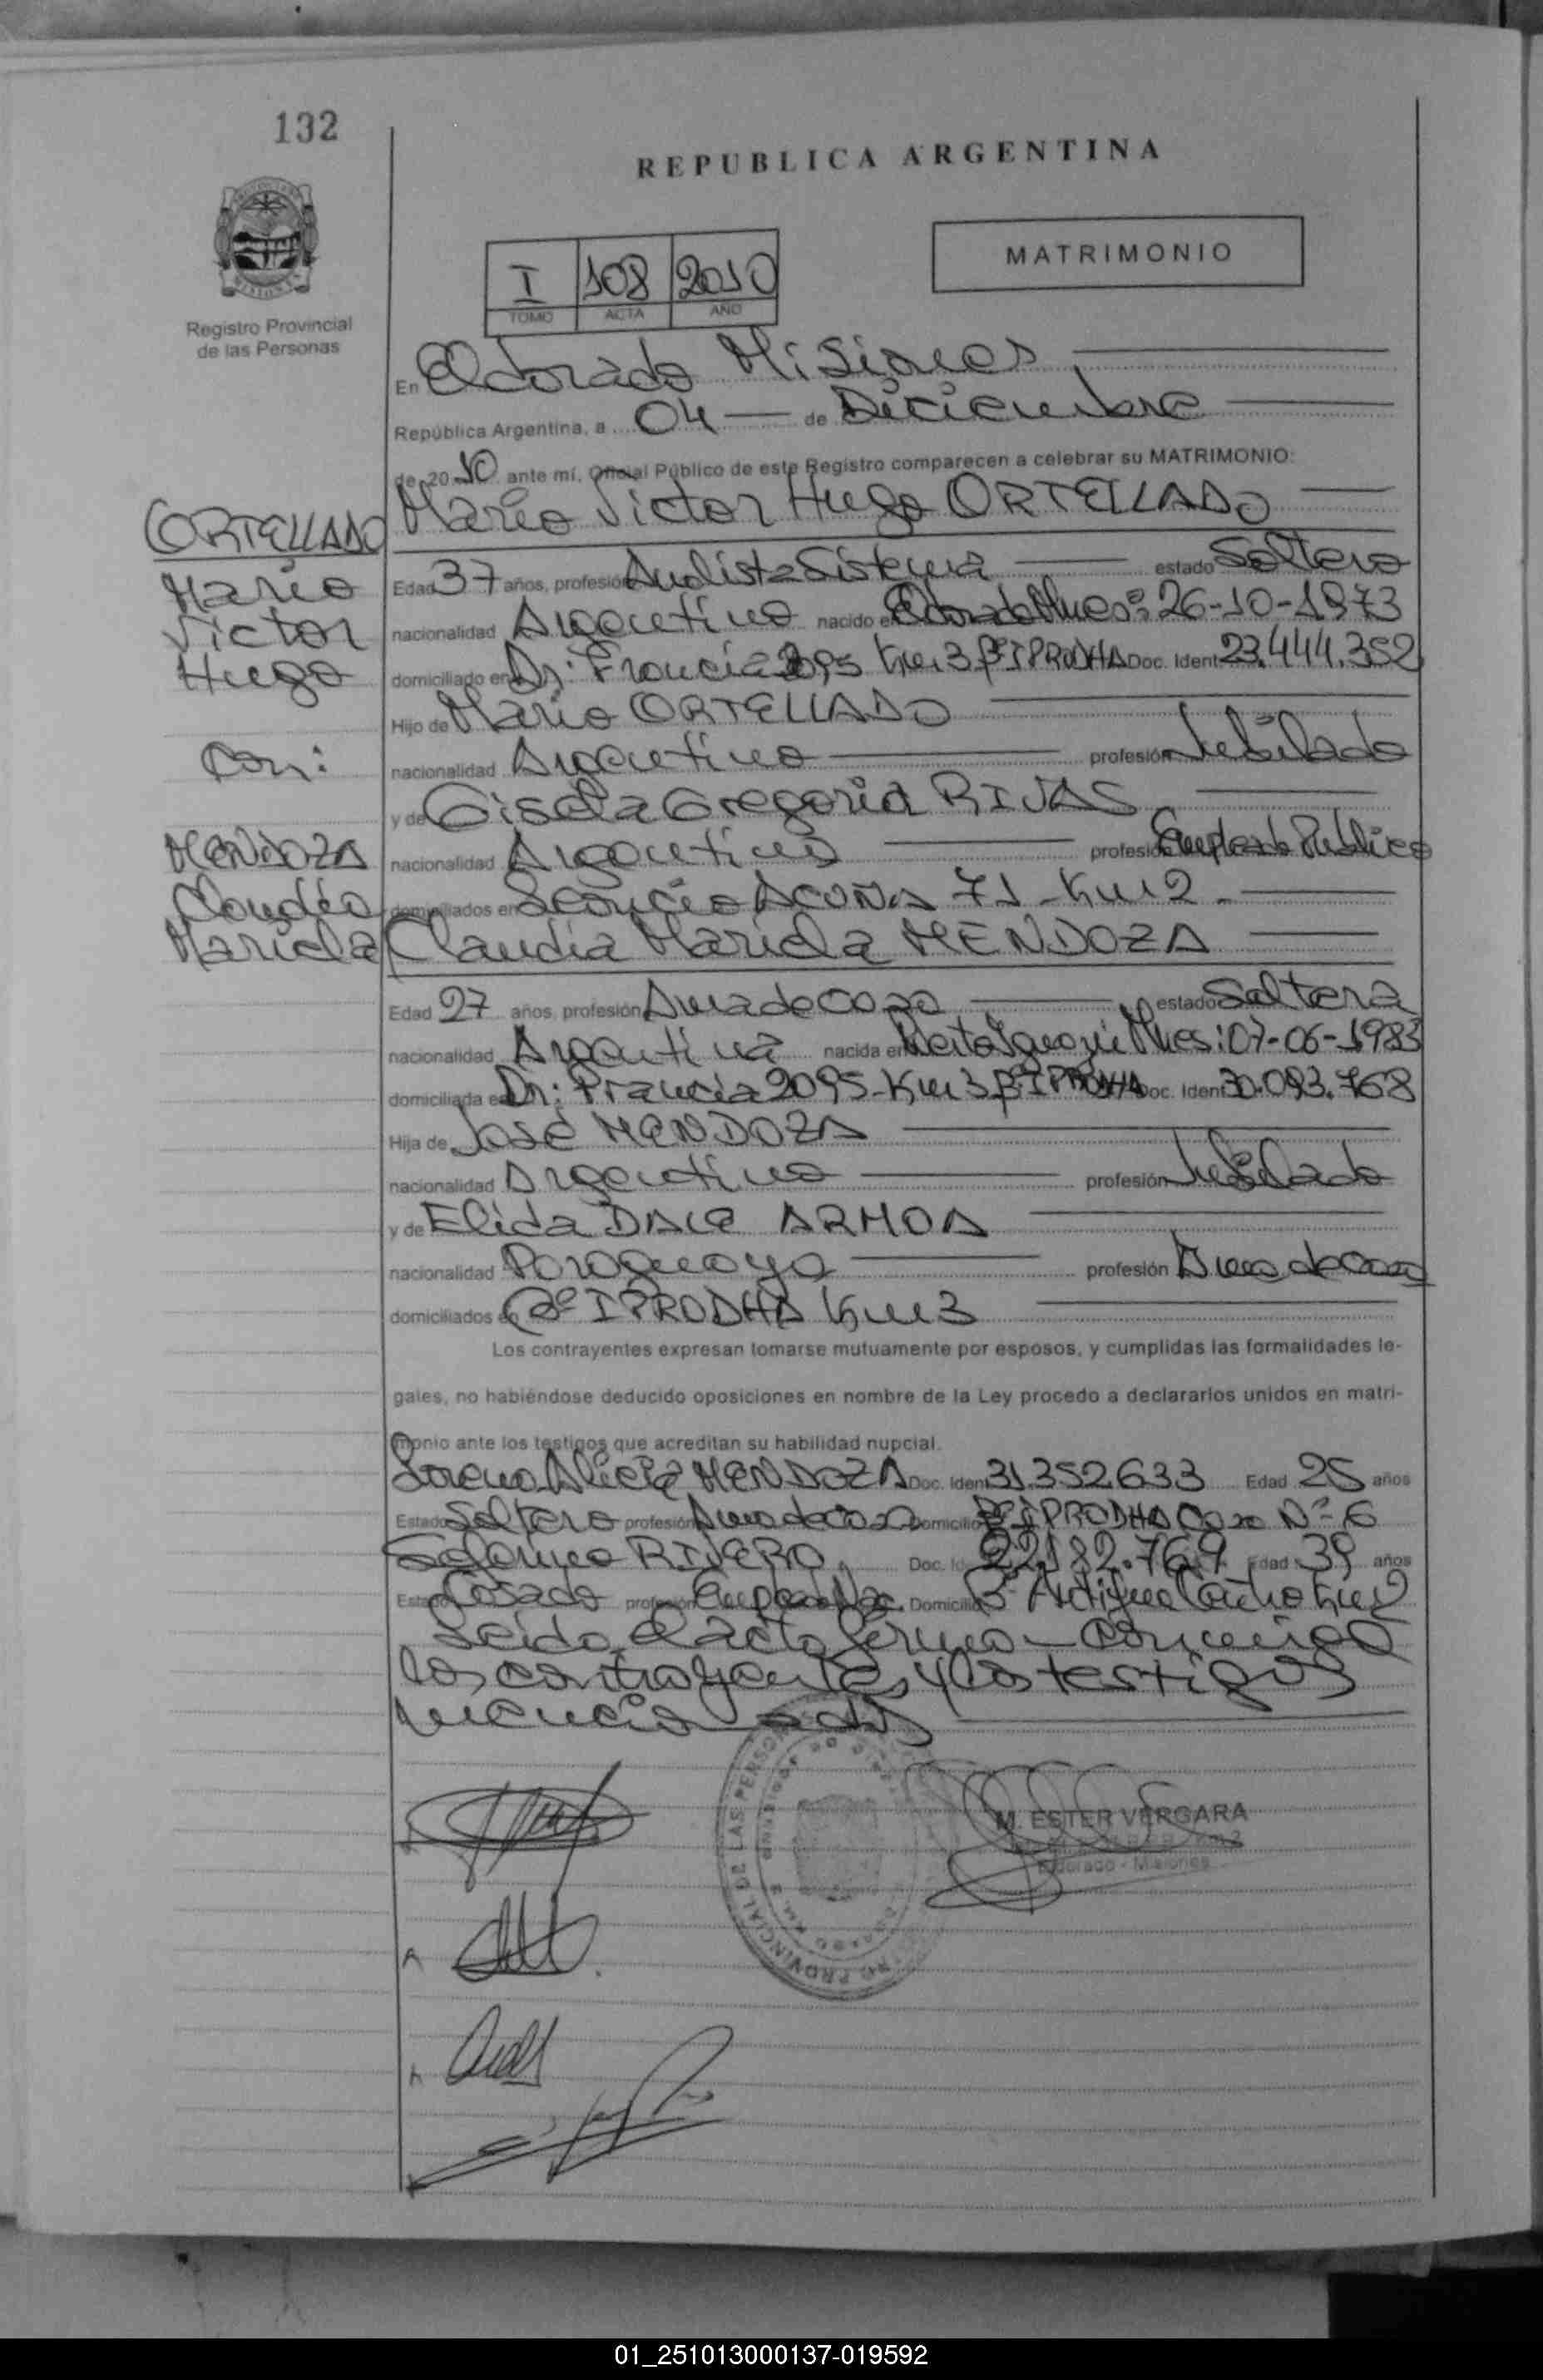 132
REPUBLICA ARGENTINA
MATRIMONIO
I 108 2010
TOMO ACTA AÑO
Registro Provincial
de las Personas
En Eldorado Misiones
República Argentina, a 04 de Diciembre
de 2010 ante mí, Oficial Público de este Registro comparecen a celebrar su MATRIMONIO:
Mario Victor Hugo ORTELLADO
ORTELLADO
Mario
Victor
Hugo
Con:
MENDOZA
Claudia
Mariela
Edad 37 años, profesión Analista Sistema estado Soltero
nacionalidad Argentino nacido en Eldorado Mnes: 26-10-1973
domiciliado en Dr: Francia 2095 Km 3 Bº IPRODHA Doc. Ident. 23.444.352
Hijo de Mario ORTELLADO
nacionalidad Argentino profesión Jubilado
y de Gisela Gregoria RIVAS
nacionalidad Argentina profesión Empleada Publica
domiciliados en Leoncio ACUÑA 71 - Km 2 -
Claudia Mariela MENDOZA
Edad 27 años, profesión Ama de casa estado Soltera
nacionalidad Argentina nacida en Mnes: 07-06-1983
domiciliada en Dr: Francia 2095 - Km 3 Bº IPRODHA Doc. Ident. 30.093.768
Hija de José MENDOZA
nacionalidad Argentino profesión Jubilado
y de Elida ARMOA
nacionalidad Paraguaya profesión Ama de casa
domiciliados en Bº IPRODHA Km 3
Los contrayentes expresan tomarse mutuamente por esposos, y cumplidas las formalidades le-
gales, no habiéndose deducido oposiciones en nombre de la Ley procedo a declararlos unidos en matri-
monio ante los testigos que acreditan su habilidad nupcial.
Lorena Alicia MENDOZA Doc. Ident. 31.352.633 Edad 25 años
Estado Soltera profesión Ama de casa Domicilio Bº IPRODHA Casa Nº 6
RIVERO Doc. Ident. 22.182.769 Edad 39 años
Estado Casado profesión Domicilio Bº Km 2
Leido el acta firman conmigo
los contrayentes y los testigos
mencionados
M. ESTER VERGARA
Eldorado - Misiones
01_251013000137-019592